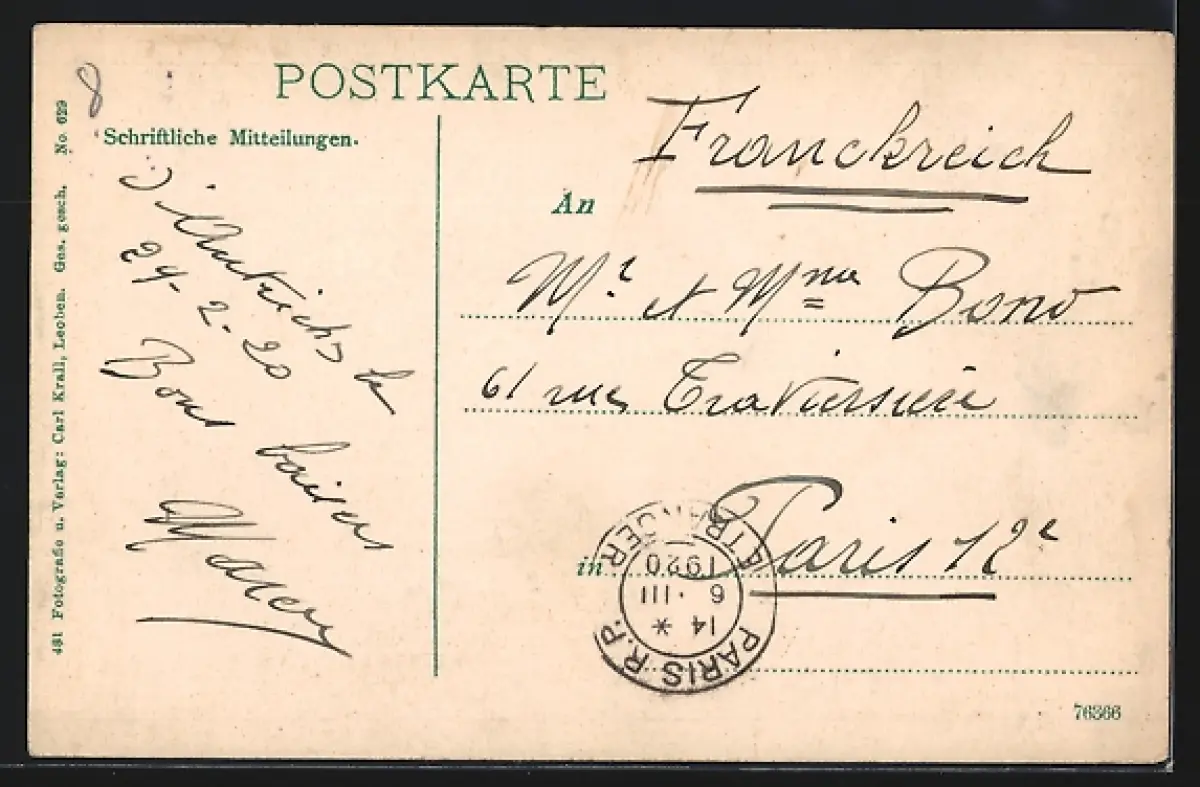 POSTKARTE
Schriftliche Mitteilungen.
8
481 Fotografie u. Verlag: Carl Krall, Leoben. Ges. gesch. No. 629
le
24-2-20
Bons baisers
Franckreich
An
Mr et Mme Bono
61 rue Traversière
in Paris 12e
PARIS R.P. ETRANGER
14 *
6 · III
1920
76366